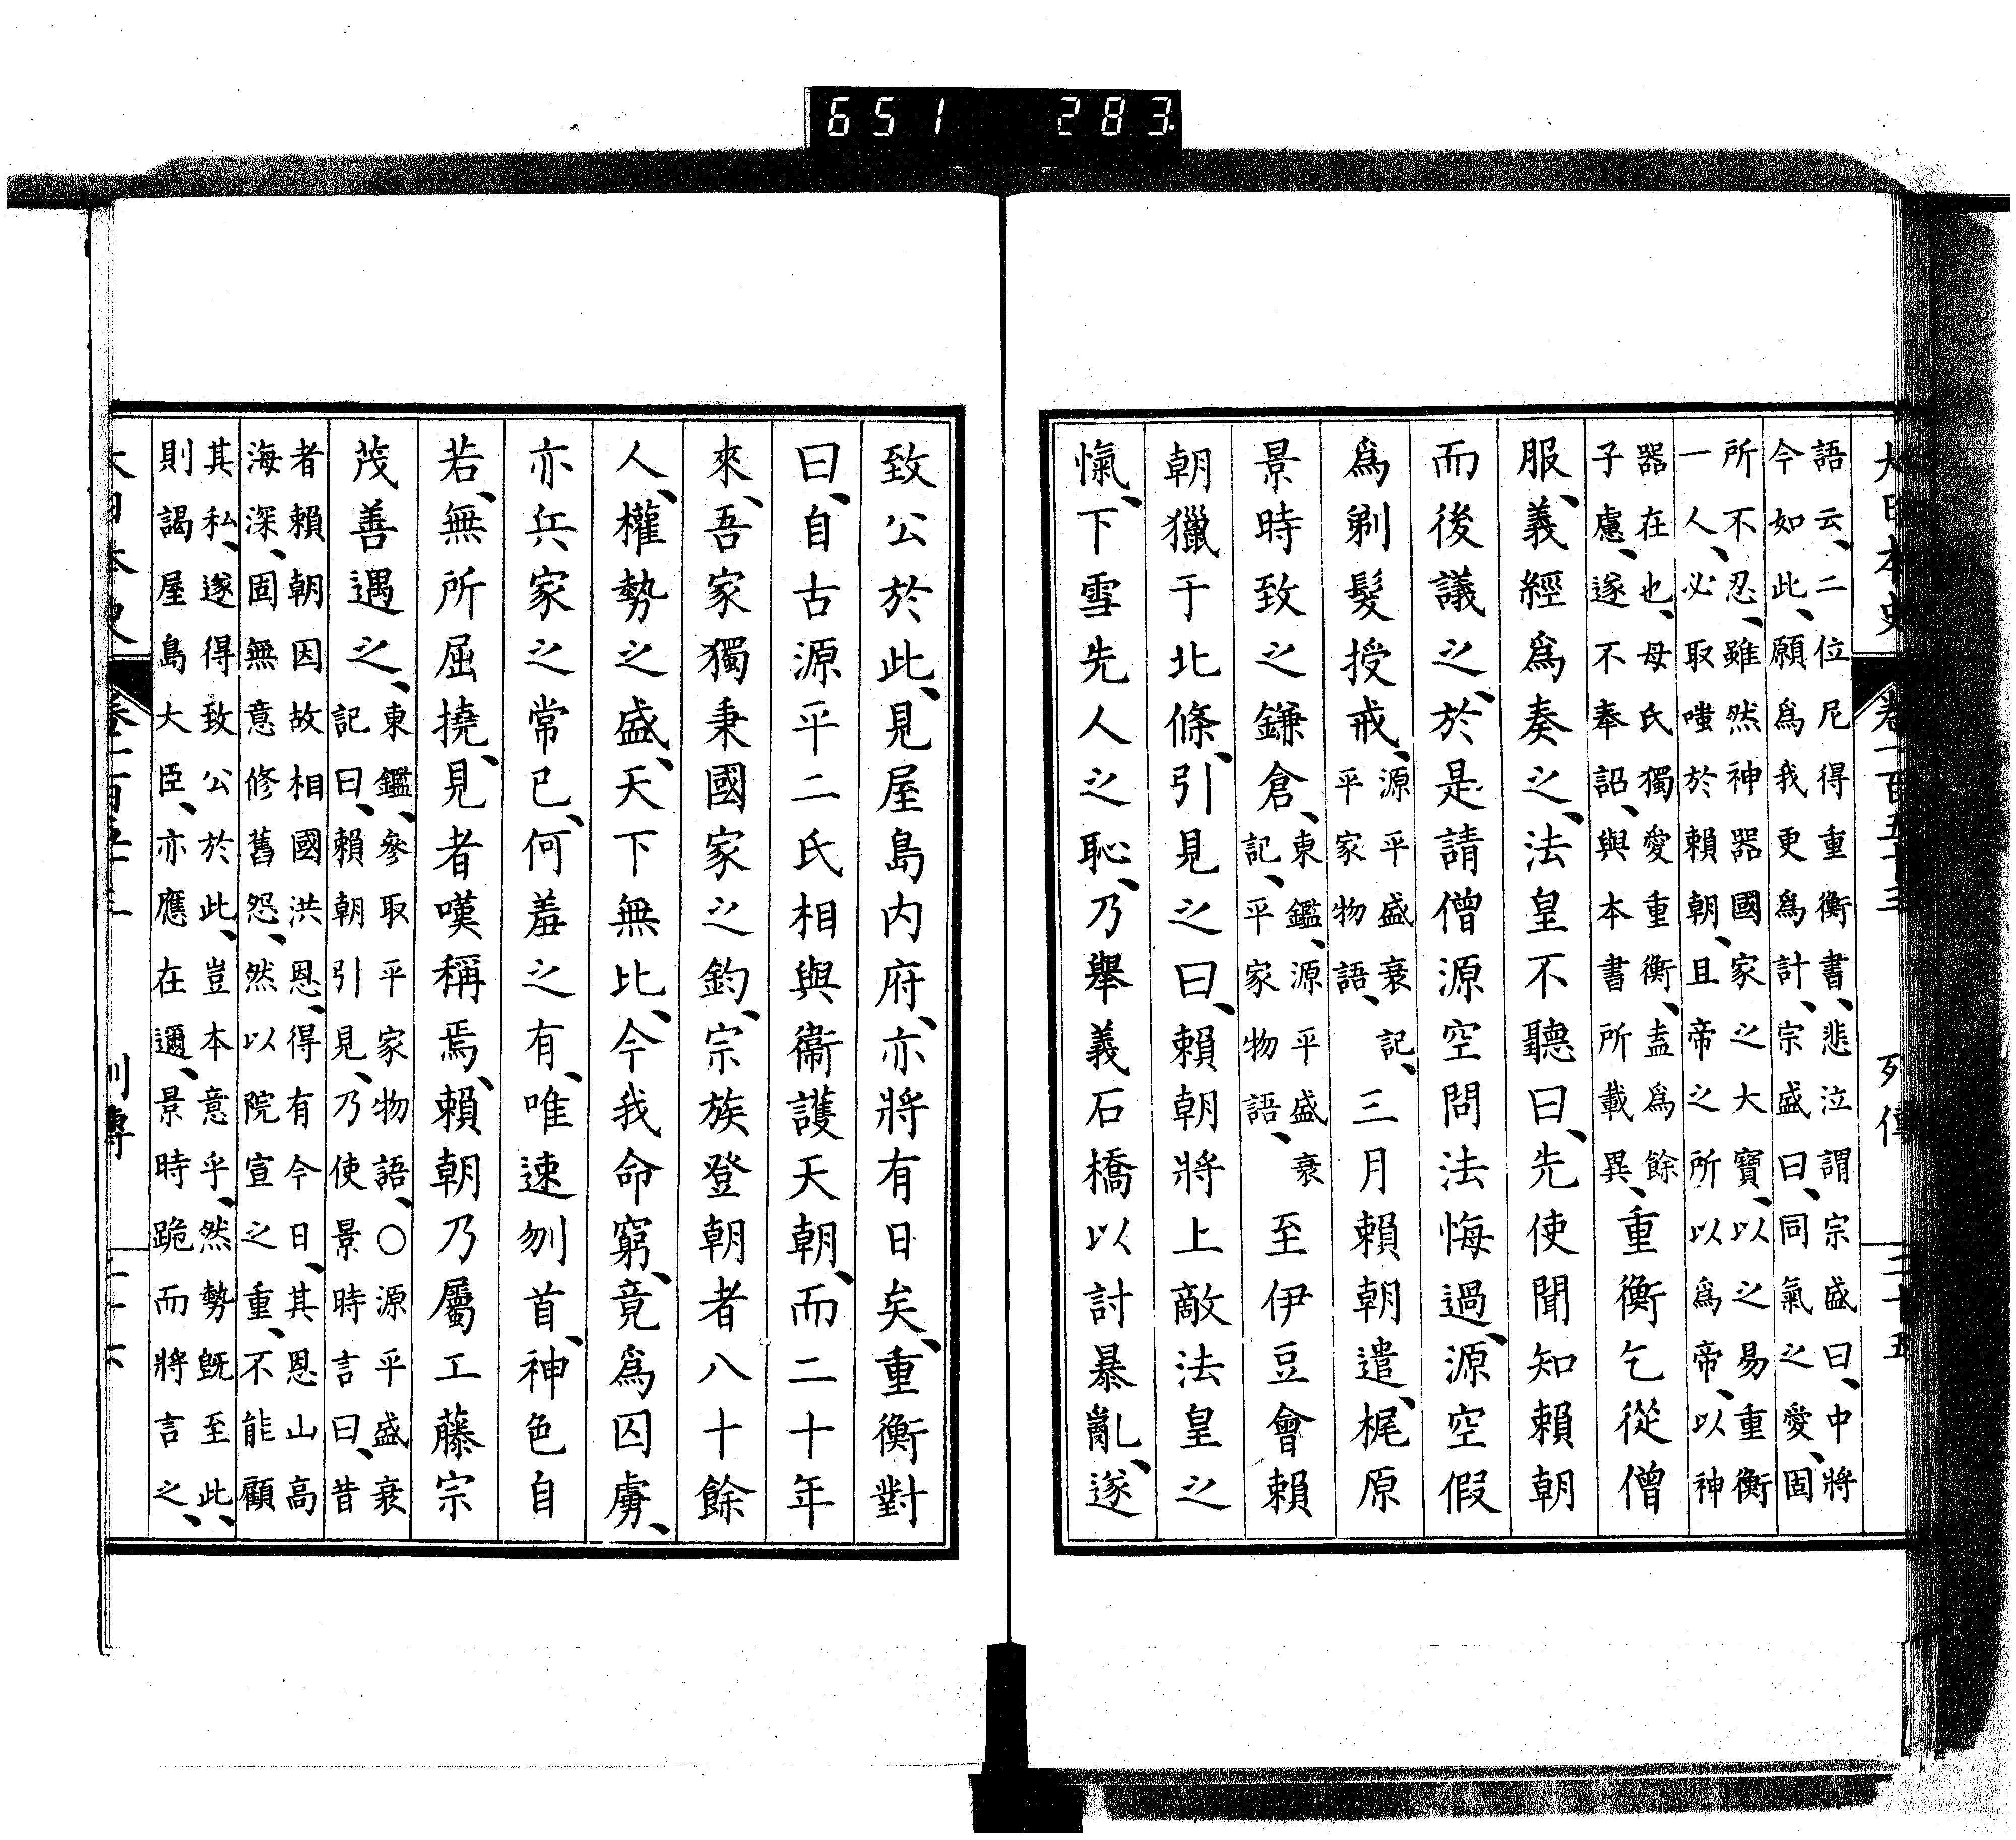 651 283
大日本史 卷一百五十三 列傳 二十五
語云、二位尼得重衡書、悲泣謂宗盛曰、中將
今如此、願爲我更爲計、宗盛曰、同氣之愛、固
所不忍、雖然神器國家之大寶、以之易重衡
一人、必取嗤於賴朝、且帝之所以爲帝、以神
器在也、母氏獨愛重衡、盍爲餘
子慮、遂不奉詔、與本書所載異、重衡乞從僧
服、義經爲奏之、法皇不聽曰、先使聞知賴朝
而後議之、於是請僧源空問法悔過、源空假
爲剃髮授戒、源平盛衰記、平家物語、三月賴朝遣、梶原
景時致之鎌倉、東鑑、源平盛衰記、平家物語、至伊豆會賴
朝獵于北條、引見之曰、賴朝將上敵法皇之
愾、下雪先人之恥、乃舉義石橋以討暴亂、遂
致公於此、見屋島內府、亦將有日矣、重衡對
曰、自古源平二氏相與衞護天朝、而二十年
來、吾家獨秉國家之鈞、宗族登朝者八十餘
人、權勢之盛、天下無比、今我命窮、竟爲囚虜、
亦兵家之常已、何羞之有、唯速刎首、神色自
若、無所屈撓、見者嘆稱焉、賴朝乃屬工藤宗
茂善遇之、東鑑、參取平家物語、〇源平盛衰
記曰、賴朝引見、乃使景時言曰、昔
者賴朝因故相國洪恩、得有今日、其恩山高
海深、固無意修舊怨、然以院宣之重、不能顧
其私、遂得致公於此、豈本意乎、然勢既至此、
則謁屋島大臣、亦應在邇、景時跪而將言之、
大日本史 卷一百五十三 列傳 二十六